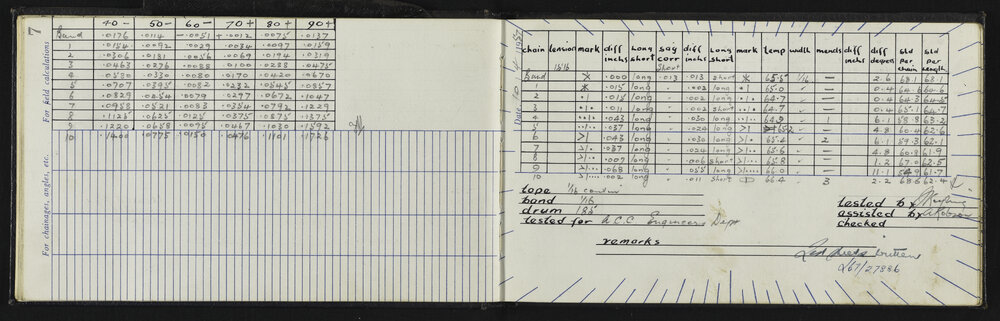 7
40 - 50 - 60 - 70 + 80 + 90 +
Band .0176 .0114 - .0051 + .0012 .0075 .0137
1 .0154 .0092 .0029 .0034 .0097 .0159
2 .0306 .0181 .0056 .0069 .0194 .0319
3 .0463 .0276 .0088 .0100 .0288 .0475
4 .0580 .0330 .0080 .0170 .0420 .0670
5 .0707 .0395 .0082 .0232 .0545 .0857
6 .0829 .0454 .0079 .0297 .0672 .1047
7 .0958 .0521 .0083 .0354 .0792 .1229
8 .1125 .0625 .0125 .0375 .0875 .1375
9 .1220 .0658 .0095 .0467 .1030 .1592
10 .1400 .0775 .0150 .0476 .1101 .1726
For field calculations
For chainages, angles, etc.
Date 10.4.1957
chain tension mark diff inchs long short sag corr diff inchs long short mark temp width mends diff inchs diff degrees std per chain std per length
15lb short
Band .000 long .013 .013 short 65.5 1/16 — 2.6 68.1 63.1
1 .015 long .002 long 65.0 — 0.4 64.6 60.6
2 .015 long .002 long 64.7 — 0.4 64.3 64.5
3 .011 long .002 short 64.7 — 0.4 65.1 64.7
4 .043 long .030 long 64.9 1 6.1 58.8 63.2
5 .037 long .024 long 65.2 — 4.8 60.4 62.6
6 .043 long .030 long 65.4 2 6.1 59.3 62.1
7 .037 long .024 long 65.6 — 4.8 60.8 61.9
8 .007 long .006 short 65.8 — 1.2 67.0 62.5
9 .068 long .055 long 66.0 — 11.1 54.9 61.7
10 .002 long .011 short 66.4 3 2.2 68.6 62.4
tape 1/16
band 1/16
drum 185
tested for A.C.C. Engineers Dept
tested by
assisted by
checked
remarks
written
L67/27886